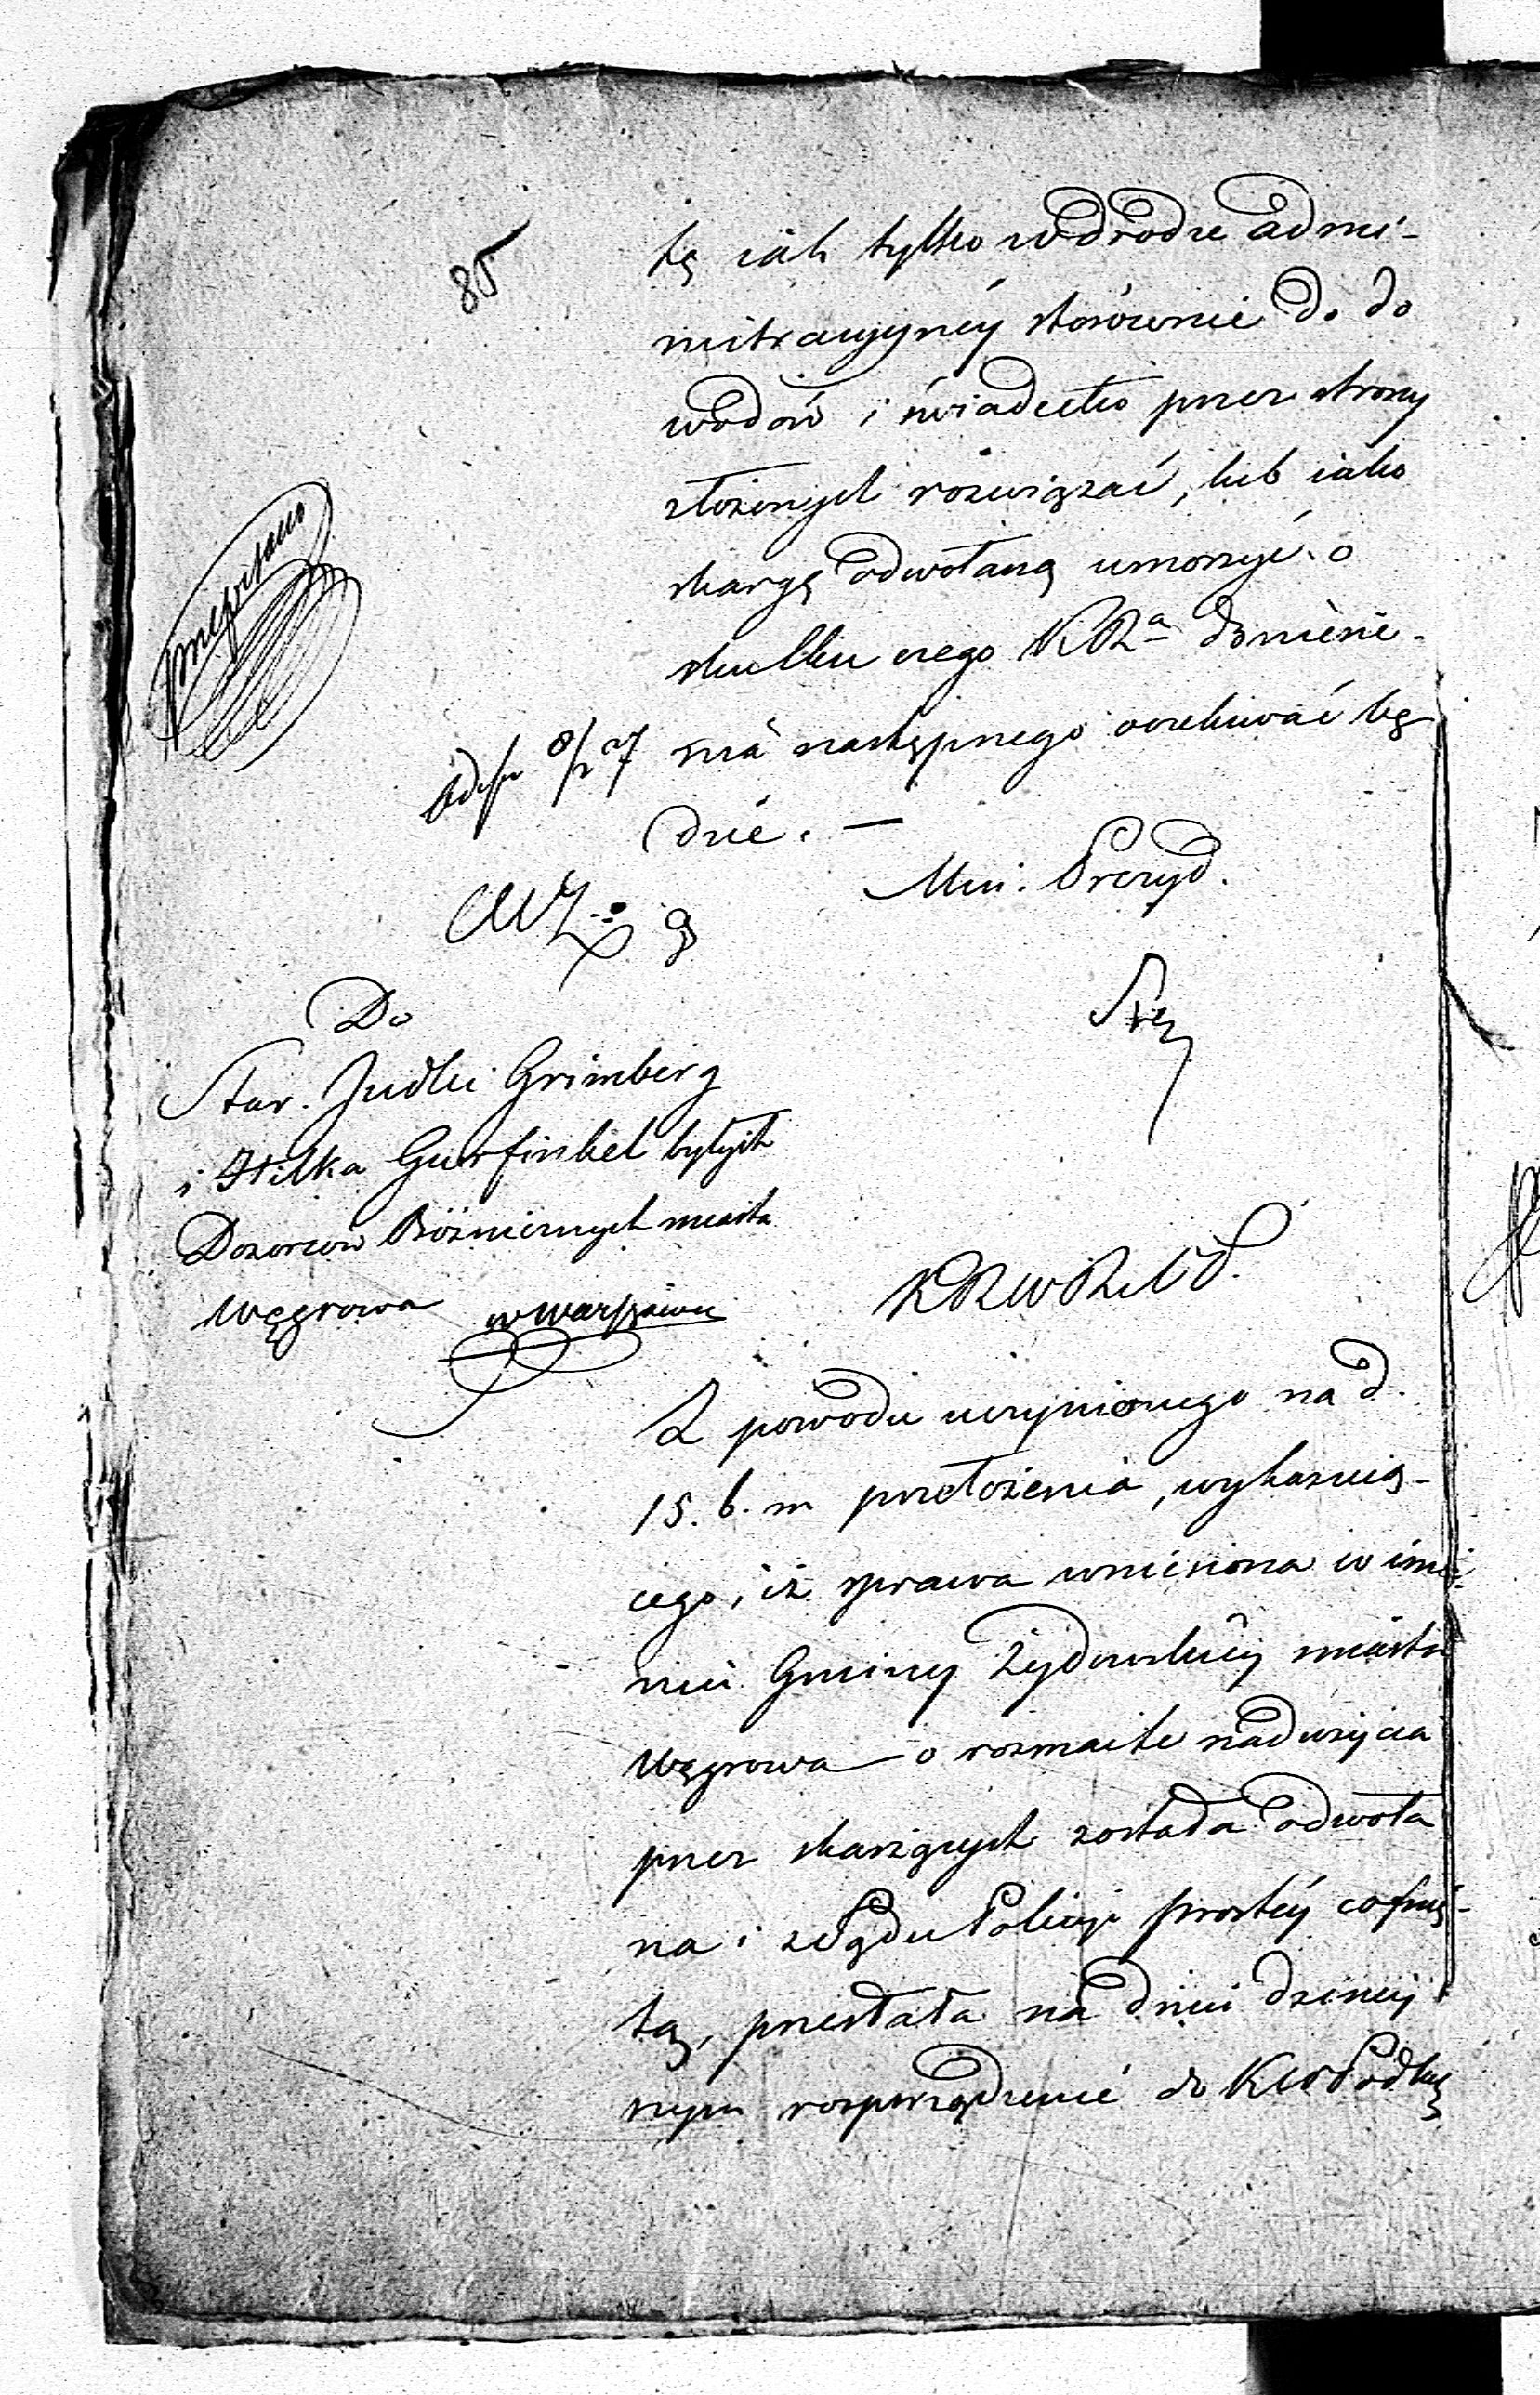 85
tę iak tylko w drodze admi-
nistracyjnéy stosownie do do
wodów i świadectw przez strony
złożonych rozwiązać, lub iako
skargę odwołaną umorzyć. o
skutku czego KRa doniesie-
nia następnego oczekiwać bę
dzie. —
Min. Prezyd.
Do
Star. Judki Grimberg
i Hilka Gurfinkel byłych
Dozorców Bóżnicznych miasta
Węgrowa w Warszawie
KRWRziOP.
Z powodu uczynionego na d.
15. b. m przełożenia, wykazuią-
cego, iż sprawa wniesiona w imie-
niu Gminy Żydowskiéy miasta
Węgrowa o rozmaite nadużycia
przez skarżących została odwoła
na i z Sądu Policyi prostéy cofnię-
tą, przesłała na dniu dzisiey
szym rozporządzenie do KWPodlas